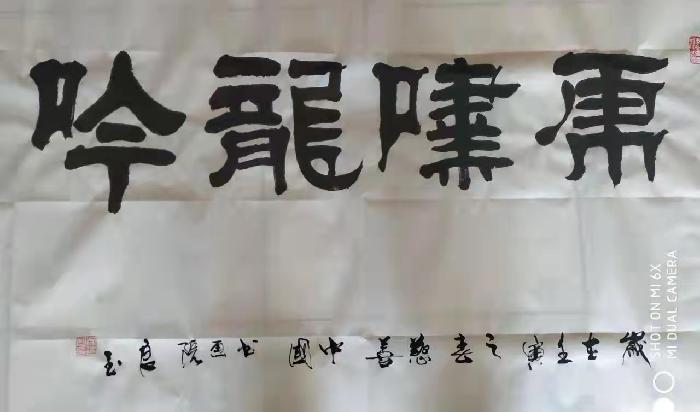 虎嘯龍吟
歲在壬寅之春慈善中國書画院意玉
SHOT ON MI 6X
MI DUAL CAMERA